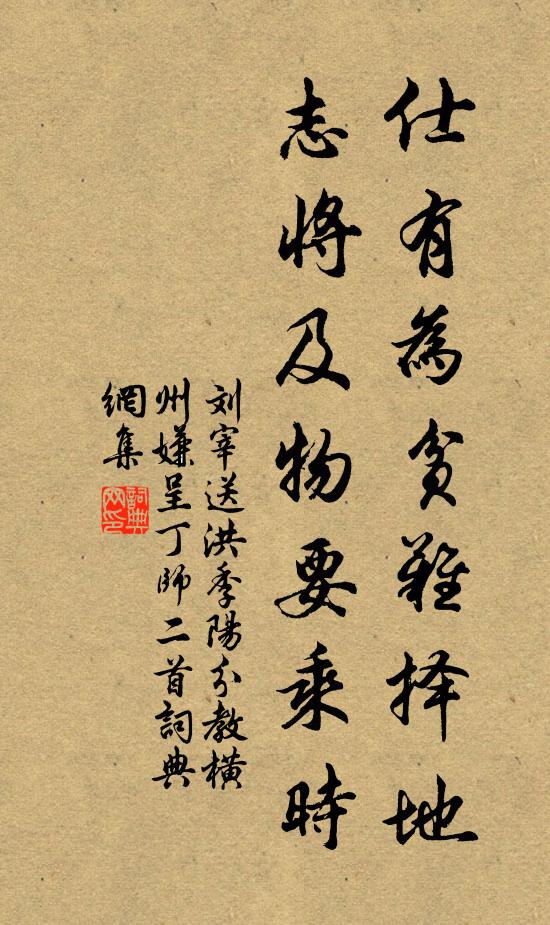 仕有為貧難择地
志將及物要乘時
刘宰送洪季陽分教橫
州嫌呈丁師二首詞典
網集
詞典
网印